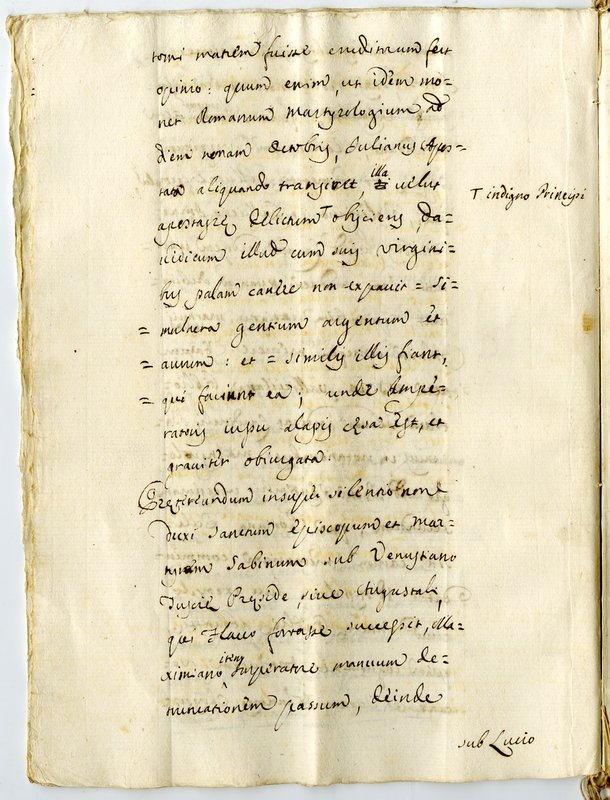 tomi matrem fuisse eruditiorum fert
opinio: quum enim, ut idem mo=
net Romanum Martyrologium ad
diem nonam Octobris, Julianus Apos=
tata aliquando transiret, illa velut
T indigno Principi
apostasiæ delictum T objiciens, Da=
vidicum illud cum suis virgini=
bus palam canere non expavit = Si=
= mulacra gentium argentum et
= aurum: et = similes illis fiant,
= qui faciunt ea; unde Impe=
ratoris jussu alapis cæsa est, et
graviter objurgata.
Prætereundum insuper silentio non
duxi Sanctum Episcopum et Mar=
tyrem Sabinum sub Venustiano
Tusciæ Præside, sive Augustali,
qui Flavio fortasse successit, Ma=
ximiano item Imperatore manuum de=
truncationem passum, deinde
sub Lucio